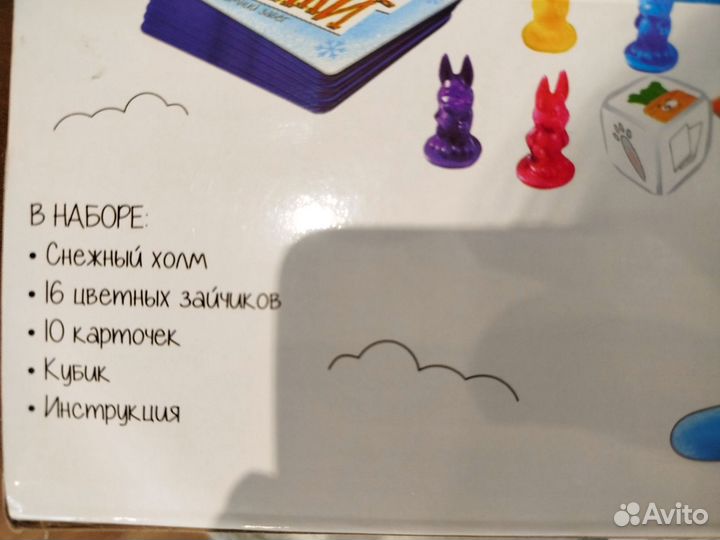 В НАБОРЕ:
• Снежный холм
• 16 цветных зайчиков
• 10 карточек
• Кубик
• Инструкция
Avito